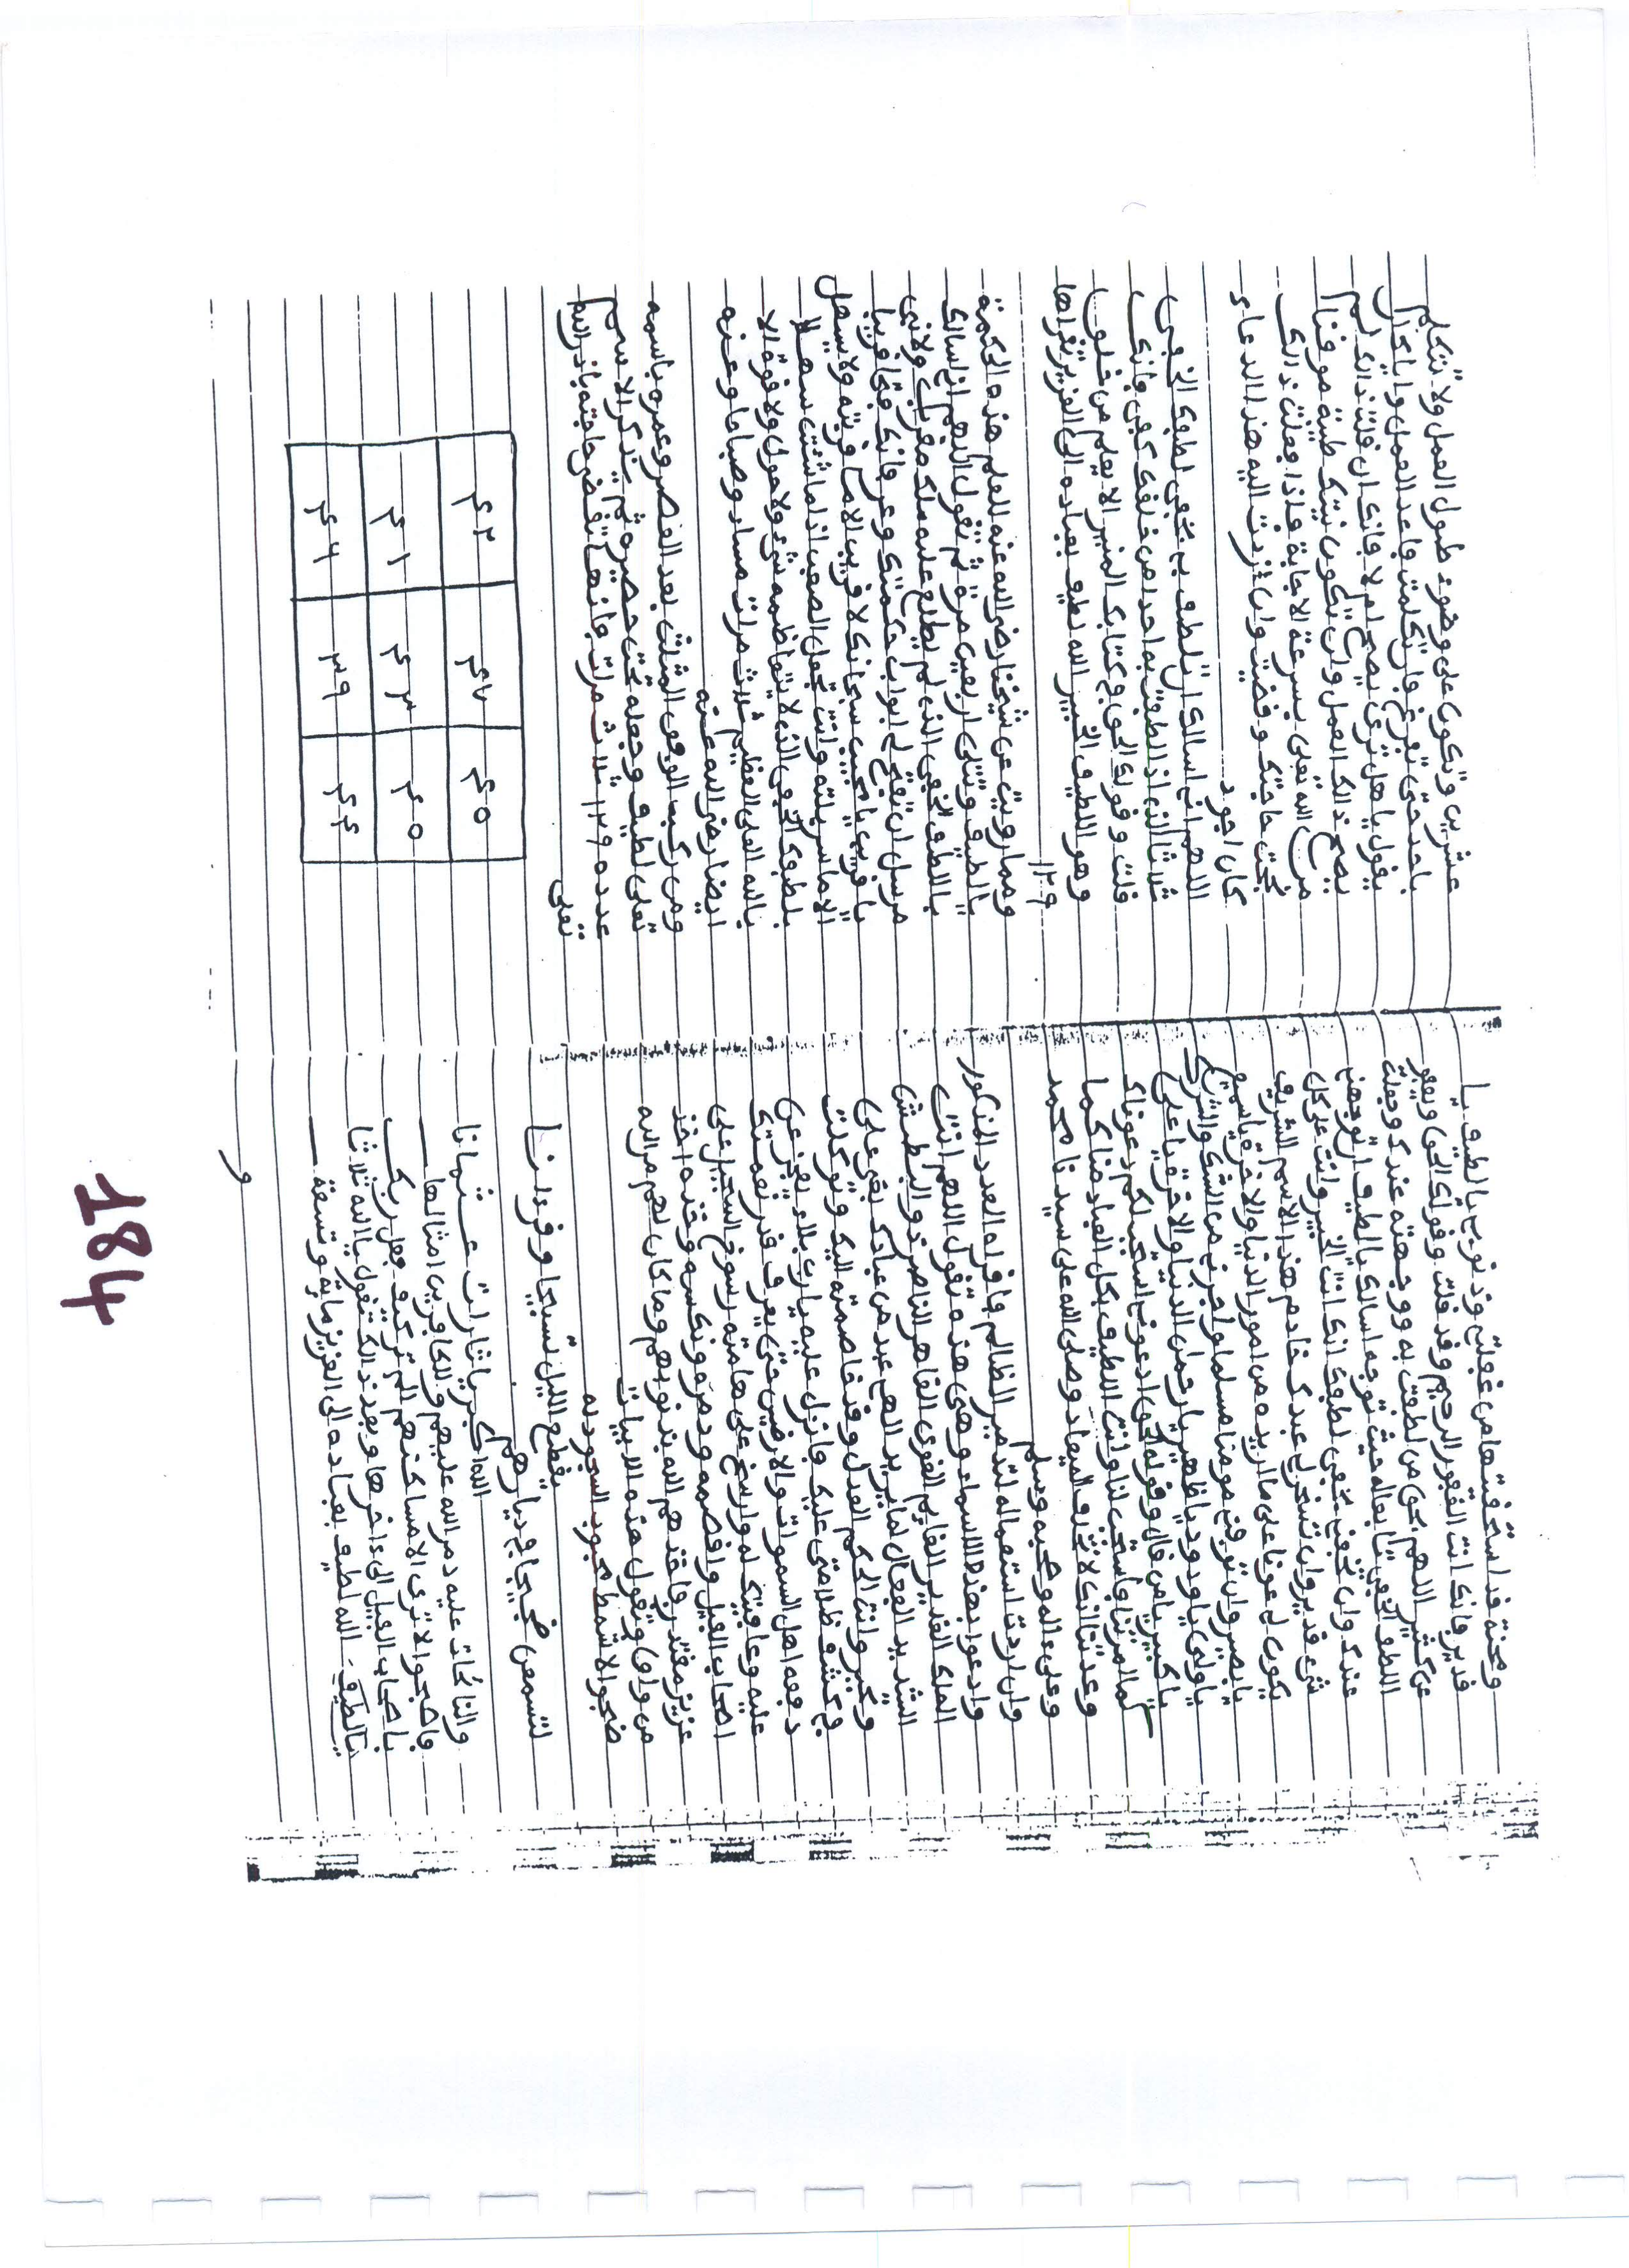 ومحنة قد استحقيتها من غفلتي وذنوبي يا لطيف يا
قدير فانك انت الغفور الرحيم وقد قلت وقولك الحق ويعفو
عن كثير اللهم بحق من لطفت به ووجهته عندك وجعلت
اللطف الخفي تابعا له حيث توجه اسالك يا لطيف ان توجهني
عندك وان تخفني بخفي لطفك انك انت الخبير وانت على كل
شيء قدير وان تسخر لي عبدك خادم هذا الاسم الشريف
يكون لي عونا على ما اريده من امور الدنيا والاخرة يا سميع
يا بصير وان توفني مومنا مسلما واجرني من الشك والشرك
يا ولي يا ودود يا ظهير يا رحمن الدنيا والاخرة يا علي
يا كبير يا من قال وقوله الحق ادعوني استجب لكم دعوناك
كما امرتنا فاستجب لنا وانت اللطيف بكل العباد منا كما
وعدتنا انك لا تخلف الميعاد وصلى الله على سيدنا محمد
وعلى ءاله وصحبه وسلم
وان اردت استعماله لتدمير الظالم فاقراه العدد المذكور
وادعوا بهذه الاسماء وهي هذه تقول اللهم انت
الملك القدير القايم القوي القاهر الناصر ذو البطش
الشديد الفعال لما يريد اللهم عبد من عبادك بغى علي
وتجبر وانت الحكم العدل وقد خاصمته اليك وتوكلت
في كشف ظلامتي عليك فانزل عليه يا رب بلاء يعجز عن
دفعه اهل السموات والارضين حتى يعرف قدر نعمتك
عليه وعافيتك له وارسخ على هامته رسوخ السجيل على
اصحاب الفيل واقصمه ودمره ونكسه وخذه اخذ
عزيز مقتدر فاخذهم الله بذنوبهم وما كان لهم من الله
من واق وتقول هذه الابيات
ضجوا لاشمط عنوان السجود به
يقطع الليل تسبيحا وقرءانا
لتسمعن ضجيجا في ديارهم
الله اكبر يا ثارات عثمانا
والنائحات عليه دمر الله عليهم وللكافرين امثالها
فاصبحوا لا ترى الا مساكنهم الم تر كيف فعل ربك
باصحاب الفيل الى ءاخرها وبعد ذلك تقول يا الله ثلاثا
يا لطيف الله لطيف بعباده الى العزيز ماية وتسعة
و
عشرين وتكون على وضوء طول العمل ولا تتكلم
باحد حتى تفرغ فان تكلمت فاعد العمل واياك ان
يقول يا هل ترى يصح ام لا فانك ان قلت ذلك لم
يصح ذلك العمل وان تكون نيتك طيبة موقنا
من الله تعلى بسرعة الاجابة فاذا فعلت ذلك
نجحت حاجتك وقضيت وان زدت اليه هذا الدعاء
كان اجود
اللهم اني اسالك ان تلطف بي بخفي لطفك الخفي
ثلاثا الذي اذا لطفت به احد من خلقك كفي فانك
قلت وقولك الحق في كتابك المنير الا يعلم من خلق
وهو اللطيف الخبير الله لطيف بعباده الى العزيز تقراها
١٢٩
ومما رويت عن شيخنا رضي الله عنه للعلم هذه الحكمة
يا لطيف وتتلى اربعين مرة ثم تقول اللهم اني اسالك
باللطف الخفي الذي لم يطلع عليه ملك مقرب ولا نبي
مرسل ان تفتح لي ابواب حكمتك وعز فانك فتحا قريبا
يا قريب يا مجيب سبحانك لا قريب الا ما قربته ولا سهل
الا ما سهلته وانت تجعل الصعب اذا ما شئت سهلا
بلطفك الخفي الذي لا يتعاظمه شيء ولا حول ولا قوة الا
بالله العلي العظيم ثلاث مرات مساء وصباحا وعنه
ايضا رضي الله عنه
ومن ركب الوفق المثلث بعد العصر وعمره باسمه
تعلى لطيف وجعله تحت حصيره ثم يذكر الاسم
عدده ١٢٩ ثلاث مرات فانها تقضى حاجته باذن الله
تعلى
٤٢ ٤٧ ٤٠
٤١ ٤٣ ٤٥
٤٦ ٣٩ ٤٤
184